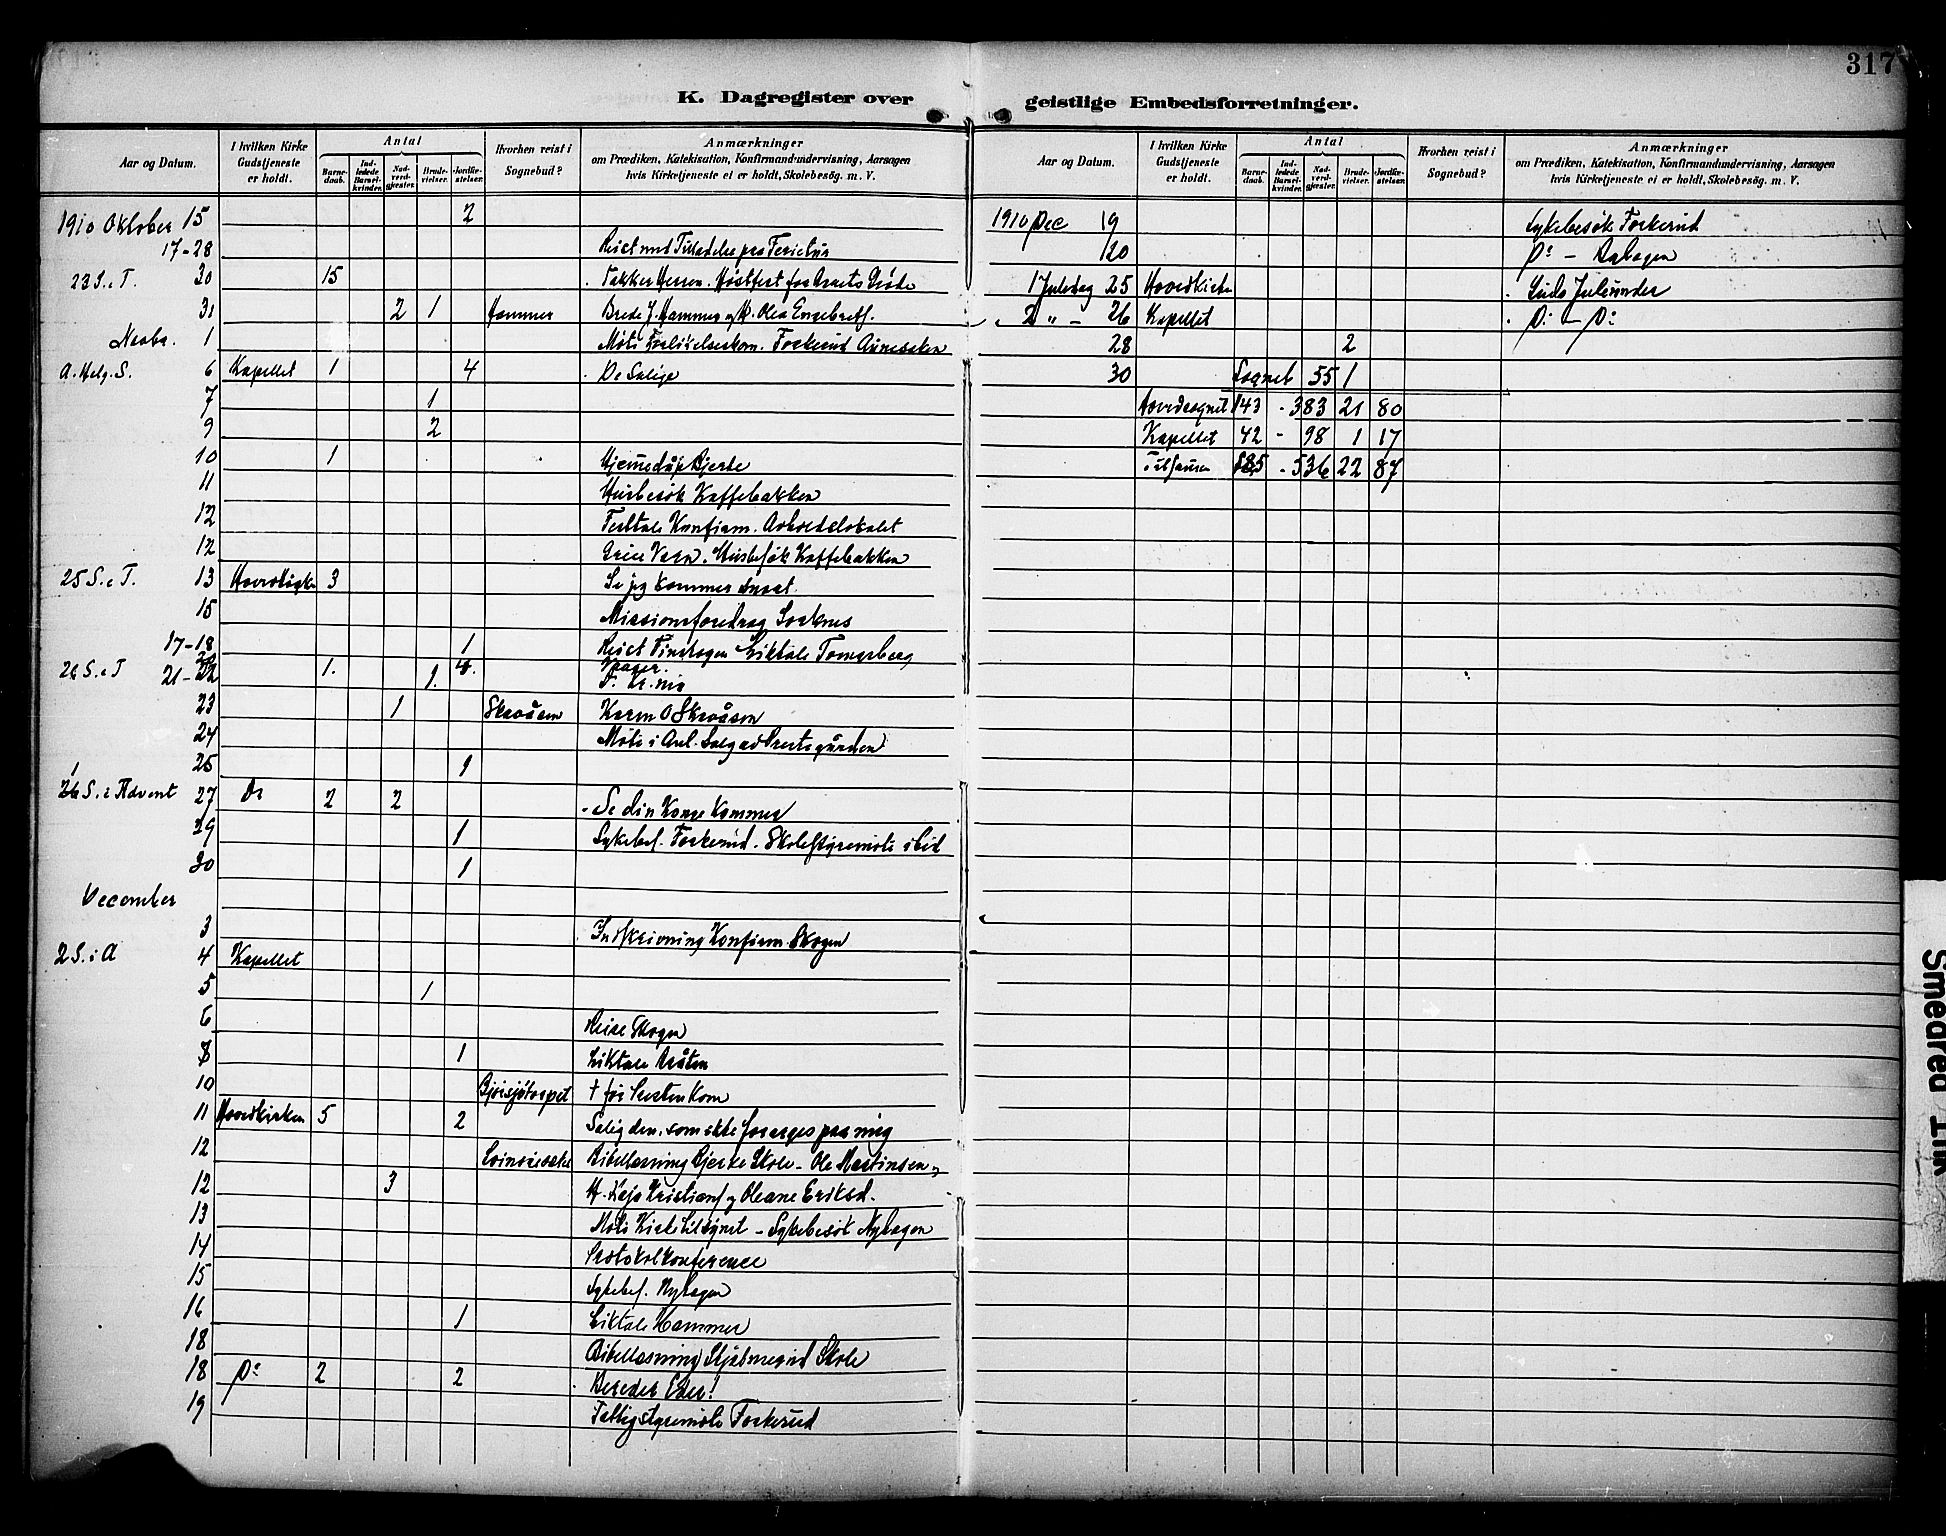 317
K. Dagregister over geistlige Embedsforretninger.
Aar og Datum. I hvilken Kirke Gudstjeneste er holdt. Antal Barnedaab. Indledede Barselkvinder. Nadverdgjester. Brudevielser. Jordfæstelser. Hvorhen reist i Sognebud? Anmærkninger om Prædiken, Katekisation, Konfirmandundervisning, Aarsagen hvis Kirketjeneste ei er holdt, Skolebesøg. m. V.
1910 Oktober 15 2
17-28 Reist med Tilladelse paa Ferietur
23 S. e. T. 30 15 Takker Herren. Høstfest for Aarets Grøde
31 2 1 Hammer Brede J. Hammer og H. Olea Engebretf.
Novbr. 1 Møte Forlikelseskom. Foskerud
A. Helg. S. 6 Kapellet 1 4 De Salige
7 1
9 2
10 1 Hjemmedåp Bjerke
11 Husbesøk Kaffebakken
12 Festtale Konfirm. Arbeidslokalet
12 Husbesøk Kaffebakken
25 S. e. T. 13 Hovedkirken 3 Se jeg kommer snart
15 Missionsforedrag Sorknes
17-18 1 Reist Finskogen Liktale
26 S. e. T 20 1. 4.
21-22 1. T. Kr.nia
23 1 Skraåsen Karen O Skraåsen
24 Møte i Anl. Salg av Prestegården
25 1
1 S. i Advent 27 Do 2 2 Se din Konge kommer
29 1 Sykebes. Foskerud. Skolestyremøte ibid
30 1
December
3 Indskrivning Konfirm. Skogen
2 S. i A 4 Kapellet
5 1
6 Reise Skogen
8 1 Liktale Bråten
10 Bjørsjøtorpet † før Presten kom
11 Hovedkirken 5 2 Salig den, som ikke forarges paa mig
12 Bibellæsning Bjerke Skole - Ole Martinsen
12 3 H. Kaja Kristians. og Oleane Eriksd.
13 Møte Kirketilsynet - Sykebesøk Nyhagen
14 Protokolkonference
15 Sykebes. Nyhagen
16 1 Liktale Hammer
18 Bibellæsning Skole
18 Do 2 2 Bereder Eder!
19 Fattigstyremøte Foskerud
Aar og Datum. I hvilken Kirke Gudstjeneste er holdt. Antal Barnedaab. Indledede Barselkvinder. Nadverdgjester. Brudevielser. Jordfæstelser. Hvorhen reist i Sognebud? Anmærkninger om Prædiken, Katekisation, Konfirmandundervisning, Aarsagen hvis Kirketjeneste ei er holdt, Skolebesøg. m. V.
1910 Dec 19 Sykebesøk Foskerud
20 Do -
1 Juledag 25 Hovedkirken Guds Juleunder
2 " - 26 Kapellet Do - Do
28 2
30 Sognet 55 1
Hovedsognet 143 - 383 21 80
Kapellet 42 - 98 1 17
Tilsammen 185 - 536 22 87
Smeared Ink